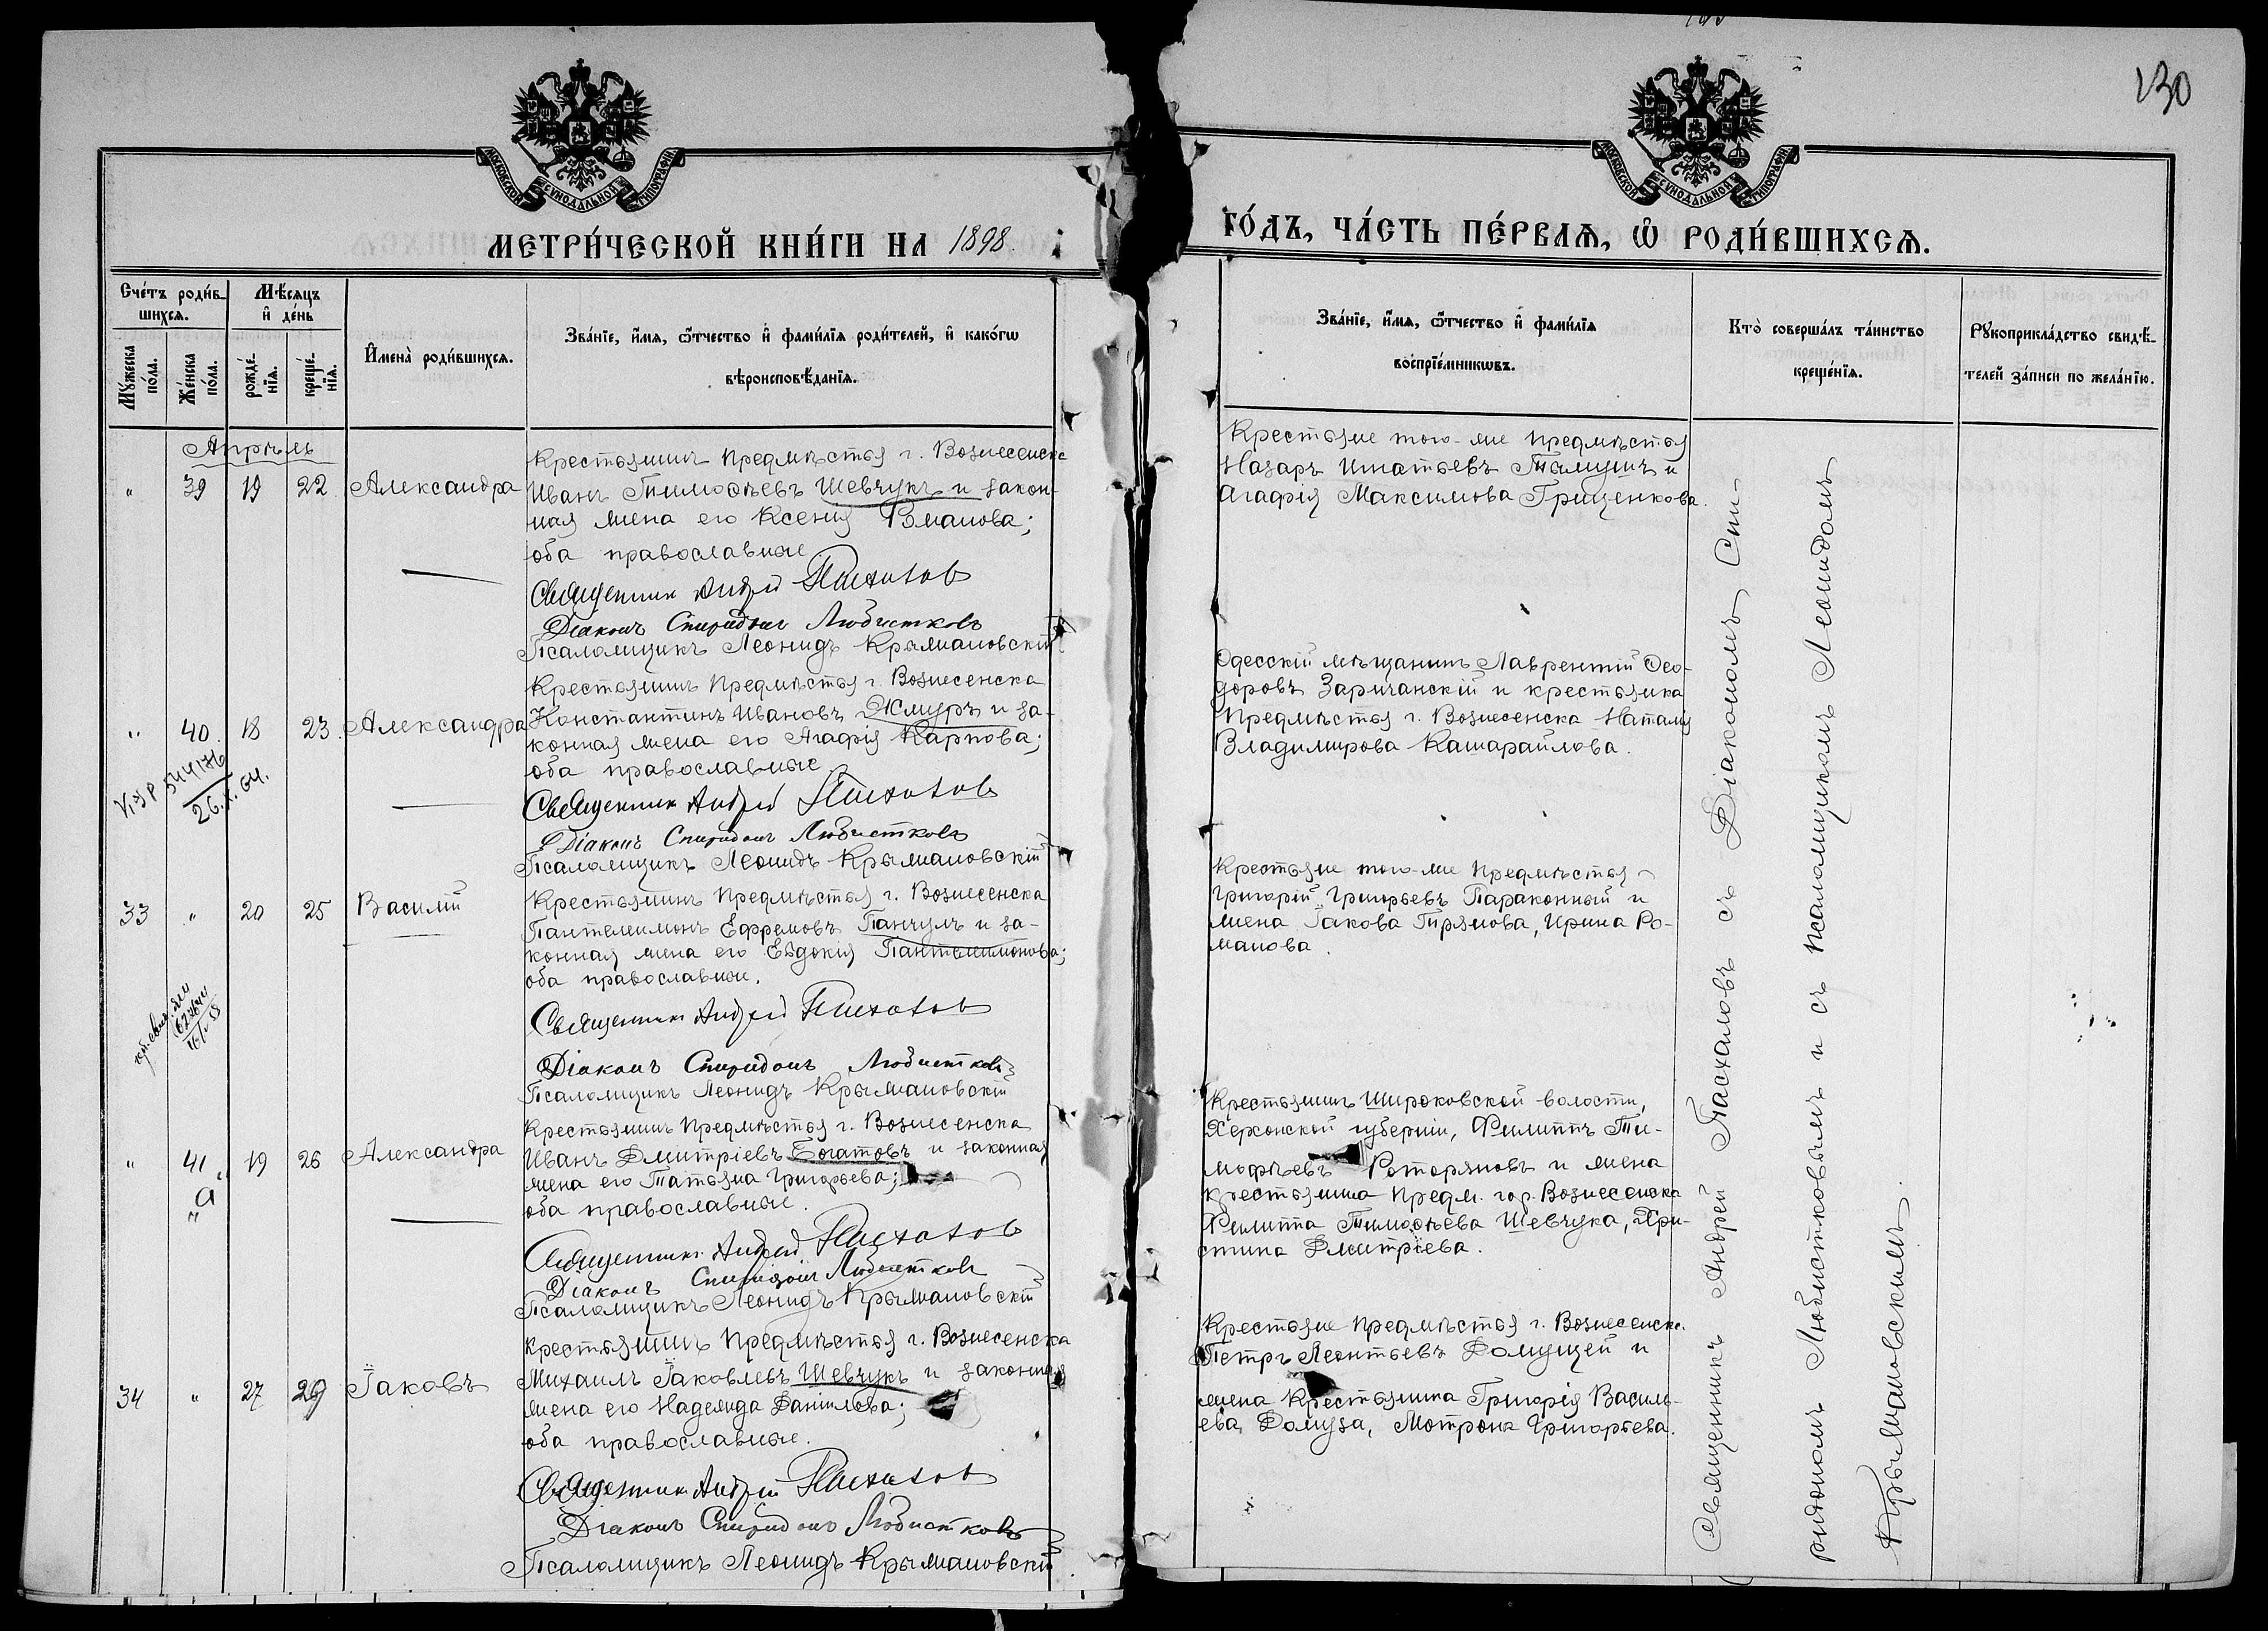 130
МОСКОВСКОЙ СѴНОДАЛЬНОЙ ТИПОГРАФІИ
МОСКОВСКОЙ СѴНОДАЛЬНОЙ ТИПОГРАФІИ
МЕТРИ́ЧЕСКОЙ КНИ́ГИ НА 1898.
ГО́ДЪ, ЧА́СТЬ ПЕ́РВАѦ, Ѡ҆ РОДИ́ВШИХСѦ.
Сче́тъ роди́в-
шихсѧ.
Мѣ́сѧцъ
и҆ де́нь
Мꙋ́жеска
по́ла.
Же́нска
по́ла.
рожде́-
нїѧ.
креще́-
нїѧ.
И҆мена̀ роди́вшихсѧ.
Зва́нїе, и҆́мѧ, ѻ҆́тчество и҆ фами́лїѧ роди́телей, и҆ како́гѡ
вѣроисповѣ́данїѧ.
Зва́нїе, и҆́мѧ, ѻ҆́тчество и҆ фами́лїѧ
воспрїе́мникѡвъ.
Кто̀ соверша́лъ та́инство
креще́нїѧ.
Рꙋкоприкла́дство свидѣ́-
телей за́писи по жела́нїю.
Апрѣль
" 39 19 22 Александра
Крестьянинъ Предмѣстья г. Вознесенска
Иванъ Тимоѳеевъ Шевчукъ и закон-
ная жена его Ксенія Романова;
оба православные.
Священник Андрей Пасхалов
Діаконъ Спиридонъ Любистковъ
Псаломщикъ Леонидъ Крыжановскій
Крестьяне того-же предмѣстья
Назаръ Игнатьевъ и
Агафія Максимова Гриценкова.
" 40. 18 23. Александра
Крестьянинъ Предмѣстья г. Вознесенска
Константинъ Ивановъ Жмуръ и за-
конная жена его Агафія Карпова;
оба православные.
Священник Андрей Пасхалов
Діаконъ Спиридонъ Любистковъ
Псаломщикъ Леонидъ Крыжановскій
544176
26.X.64.
Одесскій мѣщанинъ Лаврентій Ѳео-
доровъ Заричанскій и крестьянка
Предмѣстья г. Вознесенска Наталія
Владимирова Кашарайлова.
33 " 20 25 Василій
Крестьянинъ Предмѣстья г. Вознесенска
Пантелеимонъ Ефремовъ Панчулъ и за-
конная жена его Евдокія Пантелеимонова;
оба православные.
Священник Андрей Пасхалов
Діаконъ Спиридонъ Любистков
Псаломщикъ Леонидъ Крыжановскій
Крестьяне того-же Предмѣстья
Григорій Григорьевъ Параконный и
жена Іакова Гирянова, Ирина Ро-
манова.
" 41 19 26 Александра
"а"
Крестьянинъ Предмѣстья г. Вознесенска
Иванъ Дмитріевъ Богатовъ и законная
жена его Татьяна Григорьева;
оба православные.
Священник Андрей Пасхалов
Діаконъ Спиридонъ Любистков
Псаломщикъ Леонидъ Крыжановскій
Крестьянинъ Широковской волости,
Херсонской губерніи, Филиппъ Ти-
моѳеевъ и жена
крестьянина Предм. гор. Вознесенска
Филиппа Тимоѳеева Шевчука, Хри-
стина Дмитріева.
34 " 27 29 Іаковъ
Крестьянинъ Предмѣстья г. Вознесенска
Михаилъ Іаковлевъ Шевчукъ и законная
жена его Надежда Даніилова;
оба православные.
Священник Андрей Пасхалов
Діаконъ Спиридонъ Любистковъ
Псаломщикъ Леонидъ Крыжановскій
Крестьяне Предмѣстья г. Вознесенска
Петръ Леонтьевъ и
жена Крестьянина Григорія Василь-
ева Домуза, Мотрона Григорьева.
Священникъ Андрей Пасхаловъ съ Діакономъ Спи-
ридономъ Любистковымъ и съ псаломщикомъ Леонидомъ
Крыжановскимъ.